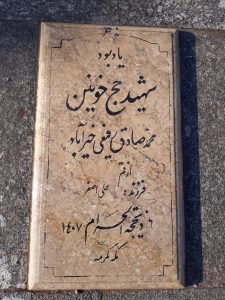 یادبود
شهید حج خونین
محمدصادق رفیعی خیرآباد
ارقم
فرزند علی اصغر
۶ ذیحجه الحرام ۱۴۰۷
مکه مکرمه